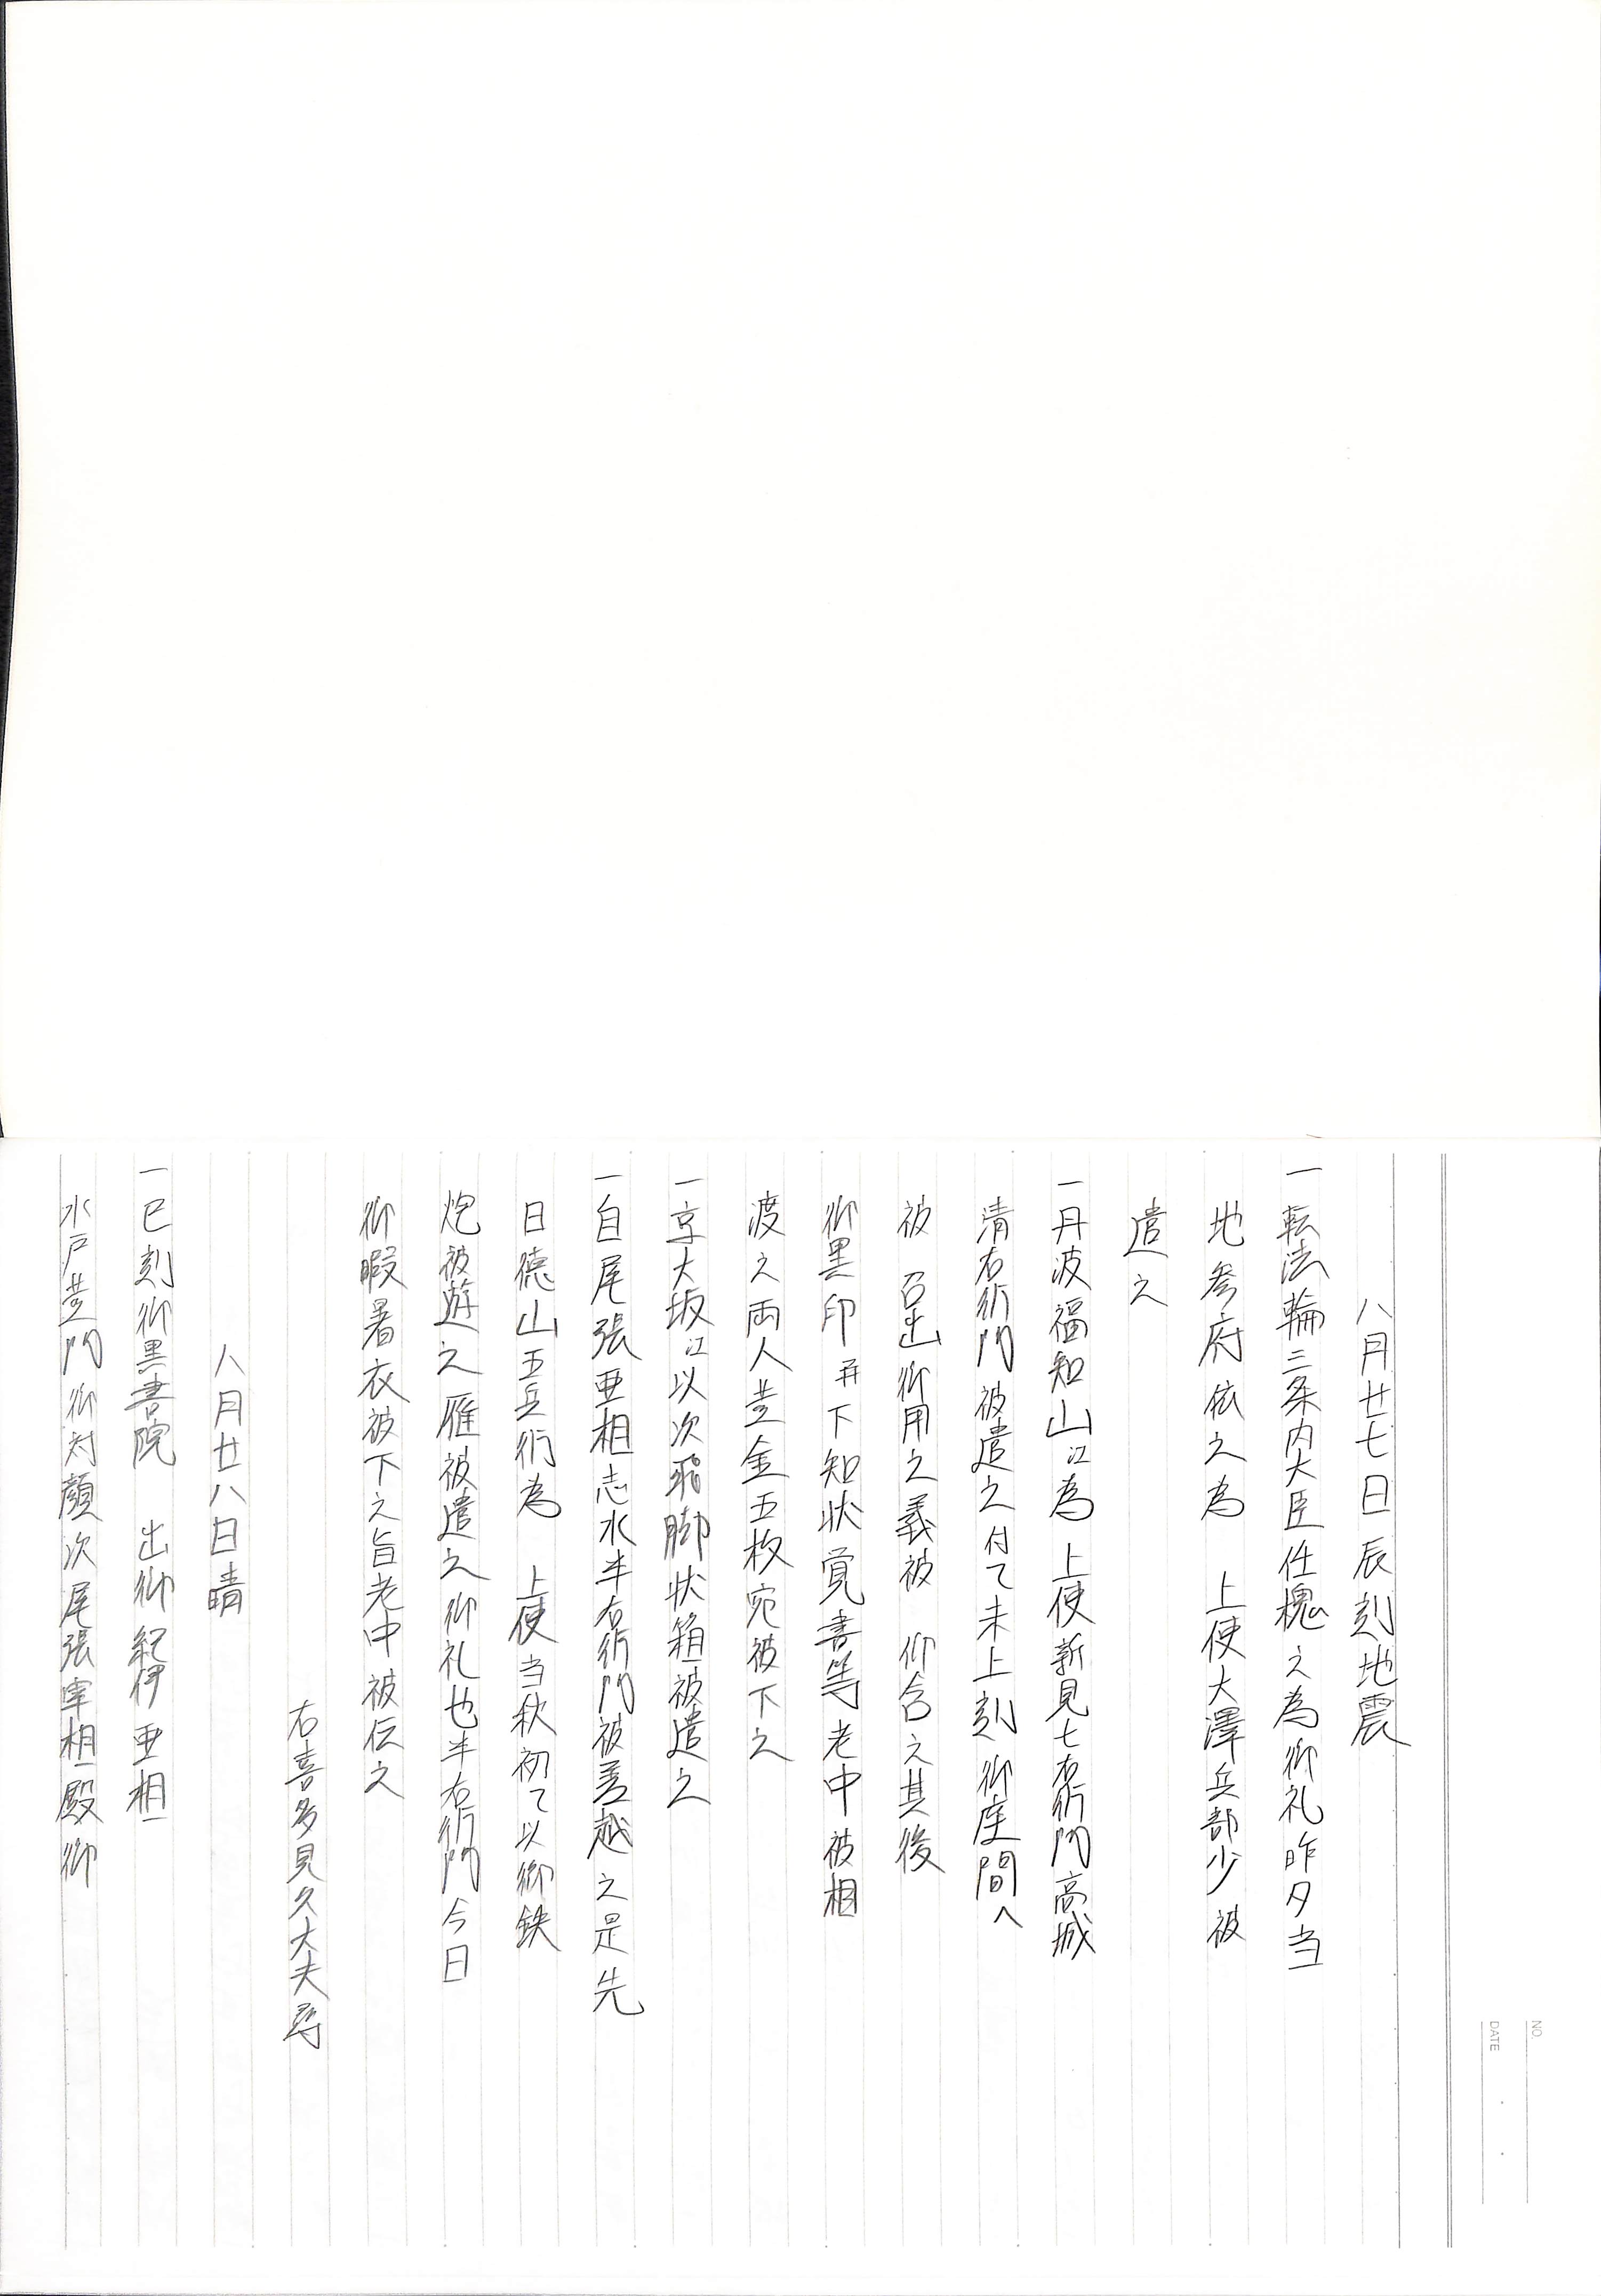 NO.
DATE
八月廿七日辰刻地震
一転法輪三条内大臣任槐之為御礼昨夕当
地参府依之為　上使大澤兵部少被
遣之
一丹波福知山江為　上使新見七右衛門高城
清右衛門被遣之付て未上刻御座間へ
被　召出御用之義被　仰含之其後
御黒印并下知状覚書等老中被相
渡之両人黄金五枚宛被下之
一京大坂江以次飛脚状箱被遣之
一自尾張亜相志水半右衛門被差越之是先
日徳山五兵衛為　上使当秋初て以御鉄
炮被遊之雁被遣之御礼也半右衛門今日
御暇暑衣被下之旨老中被伝之
右喜多見久大夫尋
八月廿八日晴
一巳刻御黒書院　出御紀伊亜相
水戸黄門御対顔次尾張宰相殿御